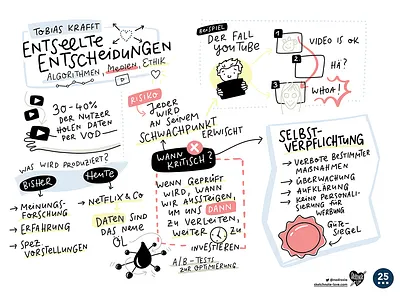 TOBIAS KRAFFT
ENTSEELTE
ENTSCHEIDUNGEN
ALGORITHMEN, MEDIEN, ETHIK
30-40%
DER NUTZER
HOLEN DATEN
PER VOD
WAS WIRD PRODUZIERT?
BISHER
→ MEINUNGS-
FORSCHUNG
→ ERFAHRUNG
→ SPEZ.
VORSTELLUNGEN
HEUTE
→ NETFLIX & CO
DATEN SIND
DAS NEUE
ÖL
RISIKO
JEDER
WIRD
AN SEINEM
SCHWACHPUNKT
ERWISCHT
WANN
KRITISCH?
WENN GEPRÜFT
WIRD, WANN
WIR AUSSTEIGEN,
UM UNS DANN
ZU VERLEITEN,
WEITER ZU
INVESTIEREN
A/B-TESTS
ZUR OPTIMIERUNG
BEISPIEL
DER FALL
YOUTUBE
1
VIDEO IS OK
2
HÄ?
3
WHOA!
SELBST-
VERPFLICHTUNG
→ VERBOTE BESTIMMTER
MASSNAHMEN
→ ÜBERWACHUNG
→ AUFKLÄRUNG
→ KEINE PERSONALI-
SIERUNG FÜR
WERBUNG
GÜTE-
SIEGEL
sketchnote-love.com
25